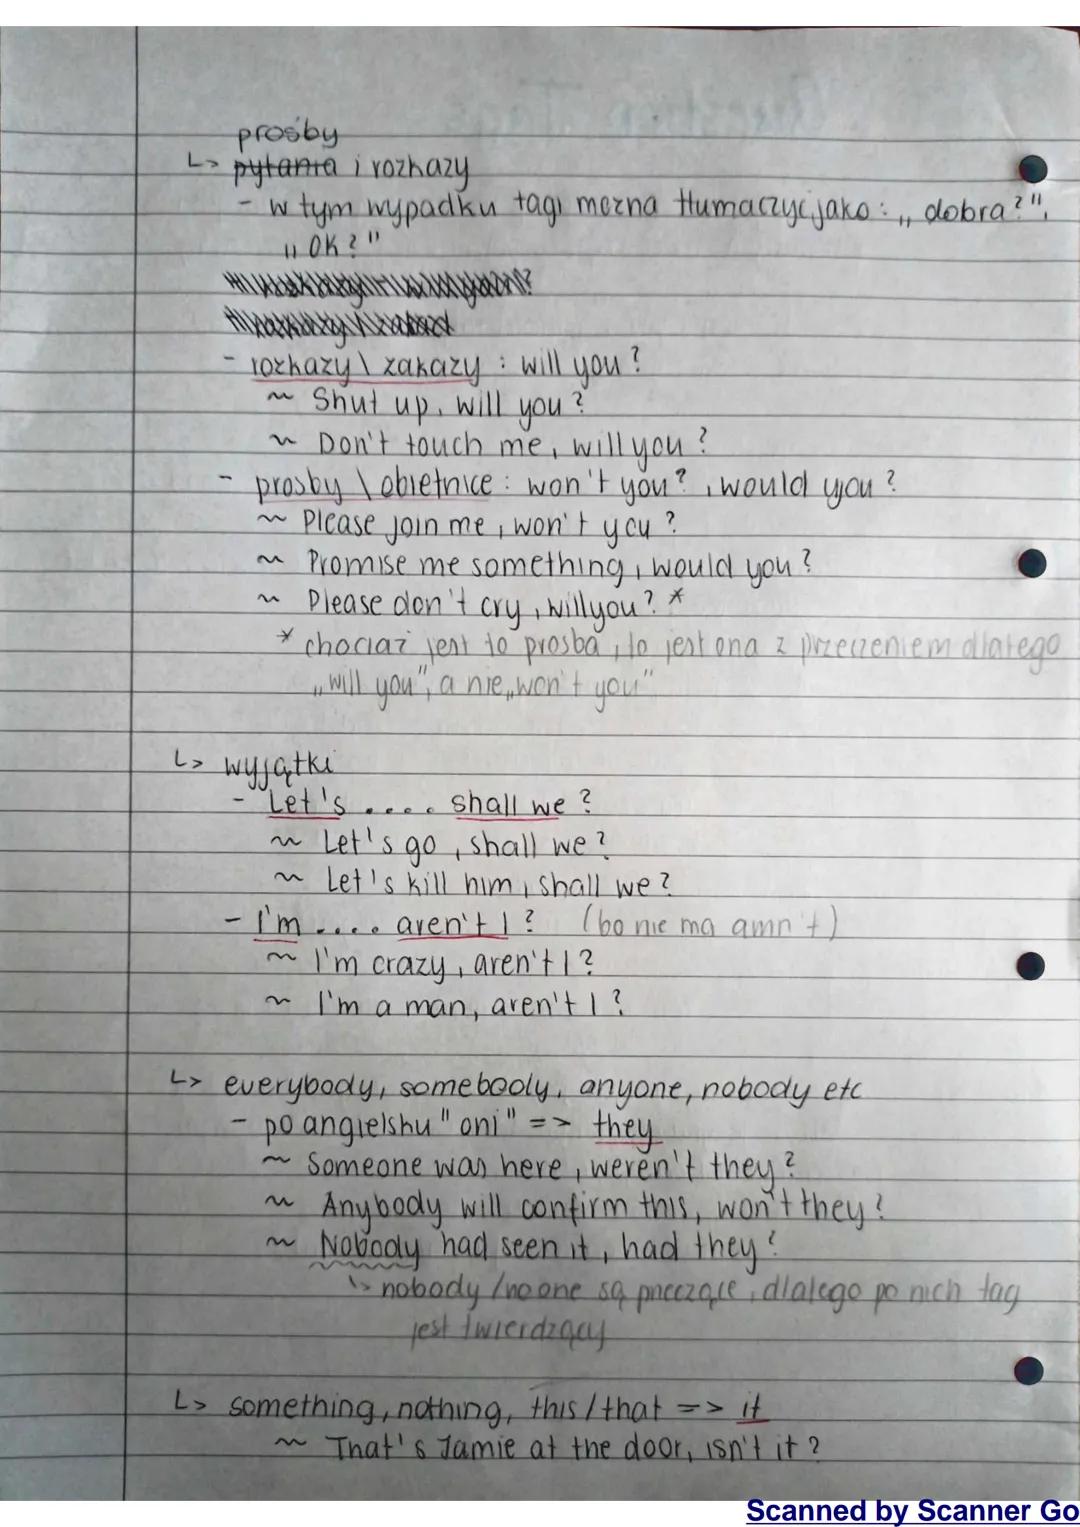 prosby
↳ pytania i rozkazy
- w tym wypadku tagi mozna tłumaczyć jako: „ dobra?",
„ OK?"
- rozkazy \ zakazy : will you?
~ Shut up, will you?
~ Don't touch me, will you?
- prosby \ obietnice : won't you?, would you?
~ Please join me, won't you?
~ Promise me something, would you?
~ Please don't cry, will you? *
* chociaż jest to prosba, to jest ona z przeczeniem dlatego
„will you", a nie „won't you"
↳ wyjątki
- Let's .... shall we?
~ Let's go, shall we?
~ Let's kill him, shall we?
- I'm .... aren't I? (bo nie ma amn't)
~ I'm crazy, aren't I?
~ I'm a man, aren't I?
↳ everybody, somebody, anyone, nobody etc
- po angielsku "oni" => they
~ Someone was here, weren't they?
~ Anybody will confirm this, won't they?
~ Nobody had seen it, had they?
↳ nobody / no one są przeczące, dlatego po nich tag
jest twierdzący
↳ something, nothing, this / that => it
~ That's Jamie at the door, isn't it?
Scanned by Scanner Go